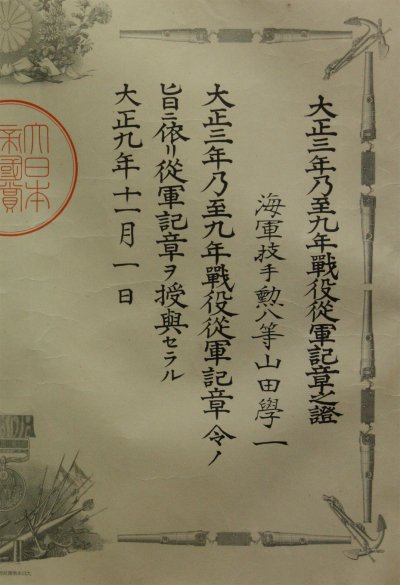 大正三年乃至九年戰役從軍記章之證
海軍技手勲八等山田學一
大正三年乃至九年戰役從軍記章令ノ
旨ニ依リ從軍記章ヲ授與セラル
大正九年十一月一日
大日本
帝國賞